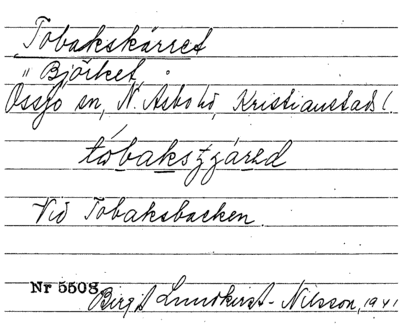 Tobakskärret
" Björket,
Össjö sn, N. Åsbo hd, Kristianstads l.
Vid Tobaksbacken.
Nr 5503
Birgit Lundkvist-Nilsson, 1941